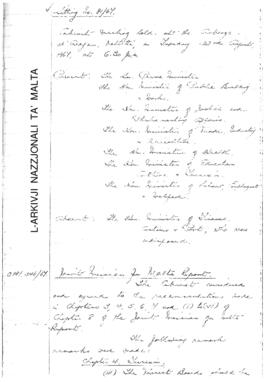 Sitting No. 41/67.
Cabinet meeting held at the Auberge
d'Aragon, Valletta, on Tuesday 22nd August,
1967, at 6.30 p.m.
Present: The Hon. Prime Minister
The Hon. Minister of Public Building
& Works.
The Hon. Minister of
The Hon. Minister of Trade, Industry
& Agriculture.
The Hon. Minister of Health
The Hon. Minister of Education
Culture & Tourism.
The Hon. Minister of Labour, Employment
& Welfare.
Absent: The Hon. Minister of Finance,
Customs & Port, who was
indisposed.
Joint Mission for Malta Report.
The Cabinet considered
and agreed to the recommendations made
in Chapters 3, 4, 5, 6, 7 and
Chapter 8 of the Joint Mission for Malta
Report.
The following
remarks were made:
Chapter 4. Tourism.
The Tourist Board should be
L-ARKIVJI NAZZJONALI TA' MALTA